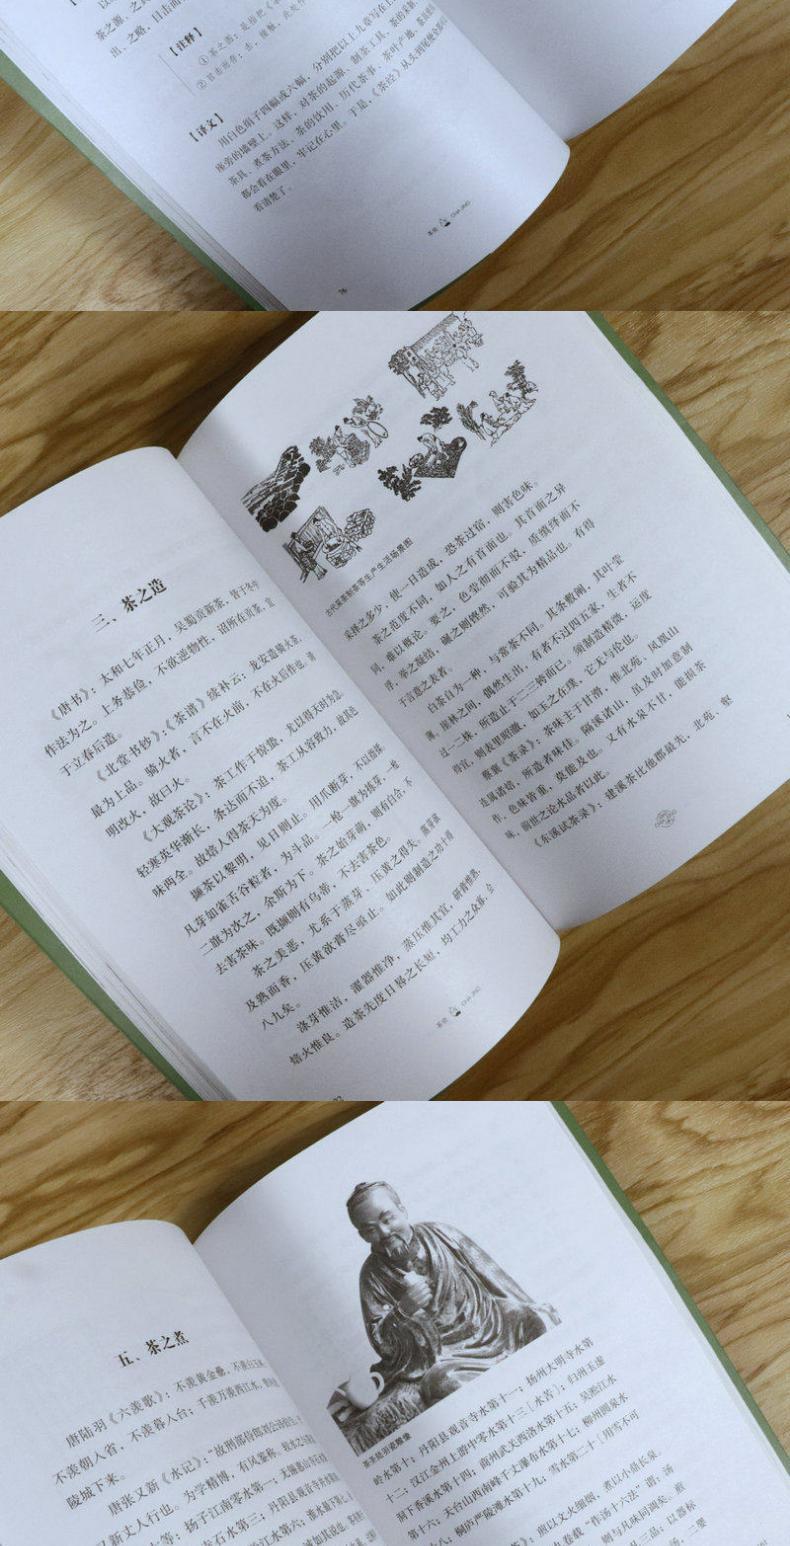 茶之源、之
出、之略，目击而
【注释】
【译文】
用白色绢子四幅或六幅，分别把以上九章写在上
座旁的墙壁上。这样，对茶的起源、制茶工具、茶的采
茶具、煮茶方法、茶的饮用、历代茶事、茶叶产地、茶
都会看在眼里，牢记在心里。于是，《茶经》从头到尾
看清楚了。
茶经 CHA JING
76
三、茶之造
《唐书》：太和七年正月，吴蜀贡新茶，皆于冬中
作法为之。上务恭俭，不欲逆物性，诏所在贡茶，宜
于立春后造。
《北堂书钞》：《茶谱》续补云：龙安造骑火茶，
最为上品。骑火者，言不在火前，不在火后作也。清
明改火，故曰火。
《大观茶论》：茶工作于惊蛰，尤以得天时为急。
轻寒英华渐长，条达而不迫，茶工从容致力，故其色
味两全。故焙人得茶天为度。
撷茶以黎明，见日则止。用爪断芽，不以指揉。
凡芽如雀舌谷粒者，为斗品。一枪一旗为拣芽，一枪
二旗为次之，余斯为下。茶之始芽萌，则有白合，不
去害茶味。既撷则有乌蒂，不去害茶色。
茶之美恶，尤系于蒸芽、压黄之得失。蒸芽欲
及熟而香，压黄欲膏尽亟止。如此则制造之功十得
八九矣。
涤芽惟洁，濯器惟净，蒸压惟其宜，研膏惟熟，
焙火惟良。造茶先度日晷之长短，均工力之众寡，会
茶经 CHA JING
古代采茶制茶等生产生活场景图
采择之多少，使一日造成，恐茶过宿，则害色味。
茶之范度不同，如人之有首面也。其首面之异
同，难以概论。要之，色莹彻而不驳，质缜绎而不
浮，举之凝结，碾之则铿然，可验其为精品也。有得
于言意之表者。
白茶自为一种，与常茶不同。其条敷阐，其叶莹
薄，崖林之间，偶然生出，有者不过四五家，生者不
过一二株，所造止于二三胯而已。须制造精微，运度
得宜，则表里昭澈，如玉之在璞，它无与伦也。
蔡襄《茶录》：茶味主于甘滑，惟北苑、凤凰山
连属诸焙，所造者味佳。隔溪诸山，虽及时加意制
作，色味皆重，莫能及也。又有水泉不甘，能损茶
味，前世之论水品者以此。
《东溪试茶录》：建溪茶比他郡最先，北苑、壑
五、茶之煮
唐陆羽《六羡歌》：不羡黄金罍，不羡白玉
不羡朝人省，不羡暮入台；千羡万羡西江水，曾向
陵城下来。
唐张又新《水记》：“故刑部侍郎刘公讳伯刍，
又新丈人行也。为学精博，有风鉴称。
七等：扬子江南零水第一；无锡惠山
石水第三；丹阳县观音寺
水第六；淮水最下第
茶圣陆羽瓷雕像
岭水第十；丹阳县观音寺水第十一；扬州大明寺水第
十二；汉江金州上游中零水第十三［水苦］；归州玉虚
洞下香溪水第十四；商州武关西洛水第十五；吴淞江水
第十六；天台山西南峰千丈瀑布水第十七；柳州圆泉水
十八；桐庐严陵滩水第十九；雪水第二十［用雪不可
茶》：煎以文火细烟，煮以小鼎长泉。
卷载“作汤十六法”谓：汤
则与凡味同调矣。煎
三品；以器标